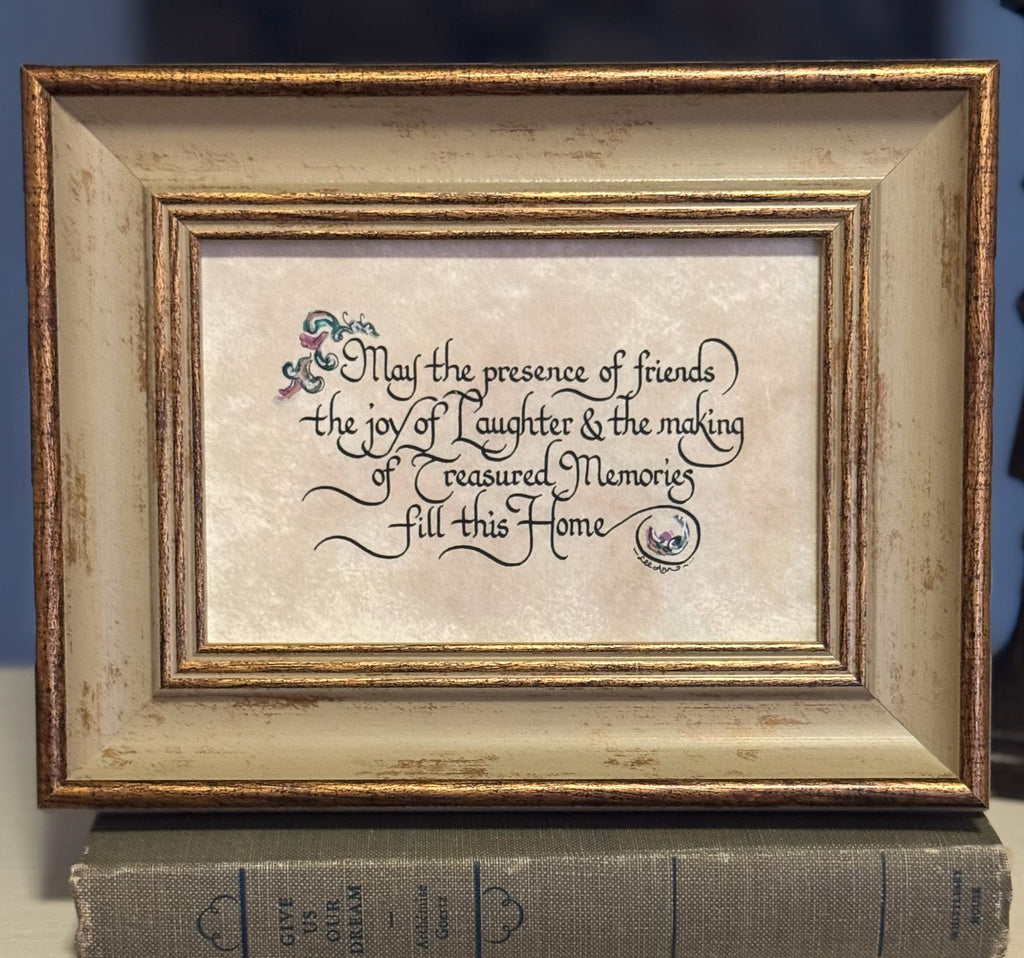 May the presence of friends
the joy of Laughter & the making
of Treasured Memories
fill this Home
GIVE
US
OUR
DREAM
Arthemise
Goertz
WHITTLESEY
HOUSE